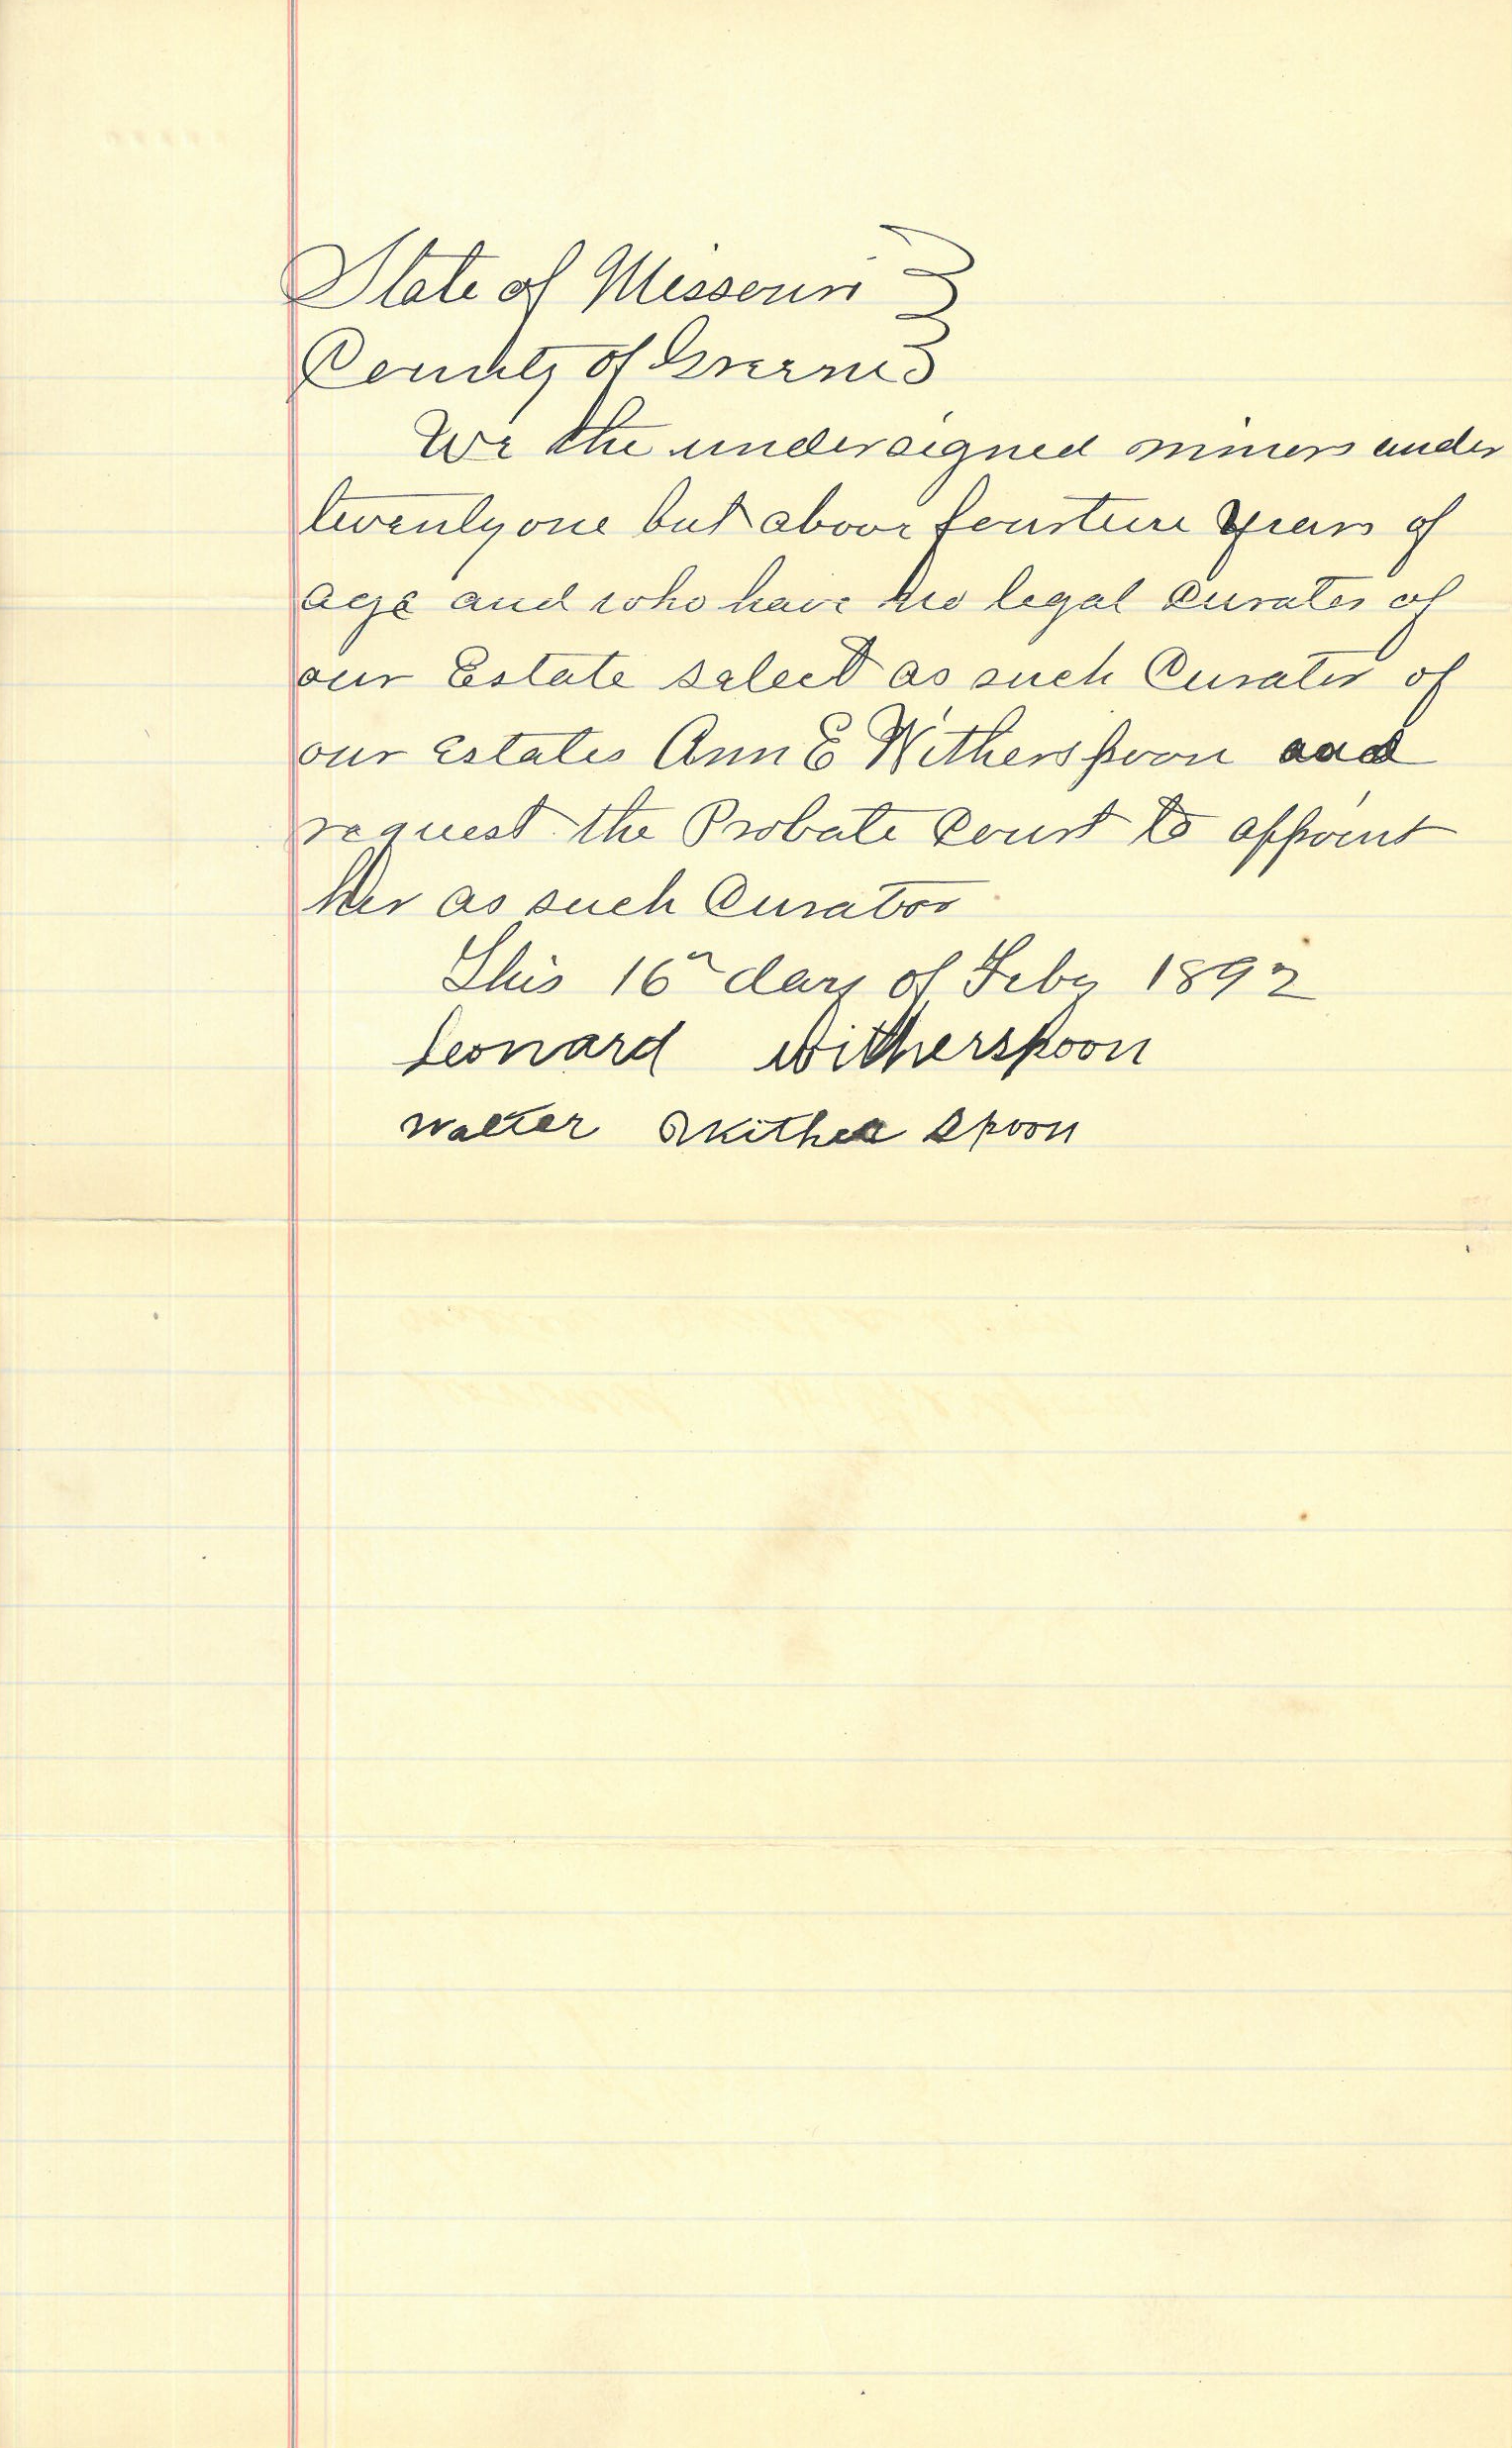 State of Missouri }
County of Greene }
We the undersigned minors under
twenty one but above fourteen years of
age and who have no legal Curator of
our Estate select as such Curator of
our estates Ann E Witherspoon and
request the Probate Court to appoint
her as such Curator
This 16th day of Feby 1892
Leonard Witherspoon
Walter Wither Spoon